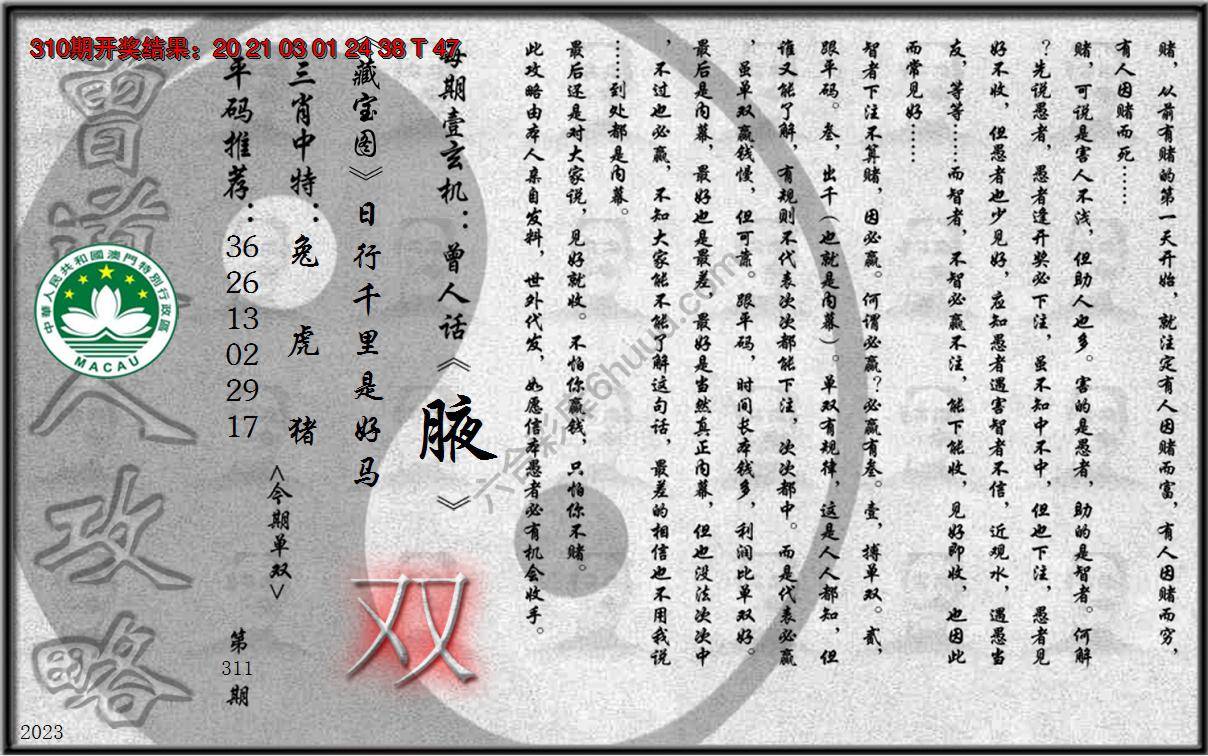 310期开奖结果：20 21 03 01 24 38 T 47
赌，从前有赌的第一天开始，就注定有人因赌而富，有人因赌而穷，
有人因赌而死……
赌，可说是害人不浅，但助人也多。害的是愚者，助的是智者。何解
？先说愚者，愚者逢开奖必下注，虽不知中不中，但也下注，愚者见
好不收，但愚者也少见好，应知愚者遇害智者不信，近观水，遇愚当
友，等等……而智者，不智必赢不注，能下能收，见好即收，也因此
而常见好……
智者下注不算赌，因必赢。何谓必赢？必赢有叁。壹，搏单双。贰，
跟平码。叁，出千（也就是内幕）。单双有规律，这是人人都知，但
谁又能了解，有规则不代表次次都能下注，次次都中。而是代表必赢
，虽单双赢钱慢，但可靠。跟平码，时间长本钱多，利润比单双好。
最后是内幕，最好也是最差，最好是当然真正内幕，但也没法次次中
，不过也必赢，不知大家能不能了解这句话，最差的相信也不用我说
……到处都是内幕。
最后还是对大家说，见好就收。不怕你赢钱，只怕你不赌。
此攻略由本人亲自发料，世外代发，如愿信本愚者必有机会收手。
每期壹玄机：曾人话《腋》
《藏宝图》日行千里是好马
双
三肖中特：兔 虎 猪
<今期单双>
平码推荐：36 26 13 02 29 17
第311期
曾道人攻略
中華人民共和國澳門特別行政區
MACAU
六合彩库6huuu.com
2023